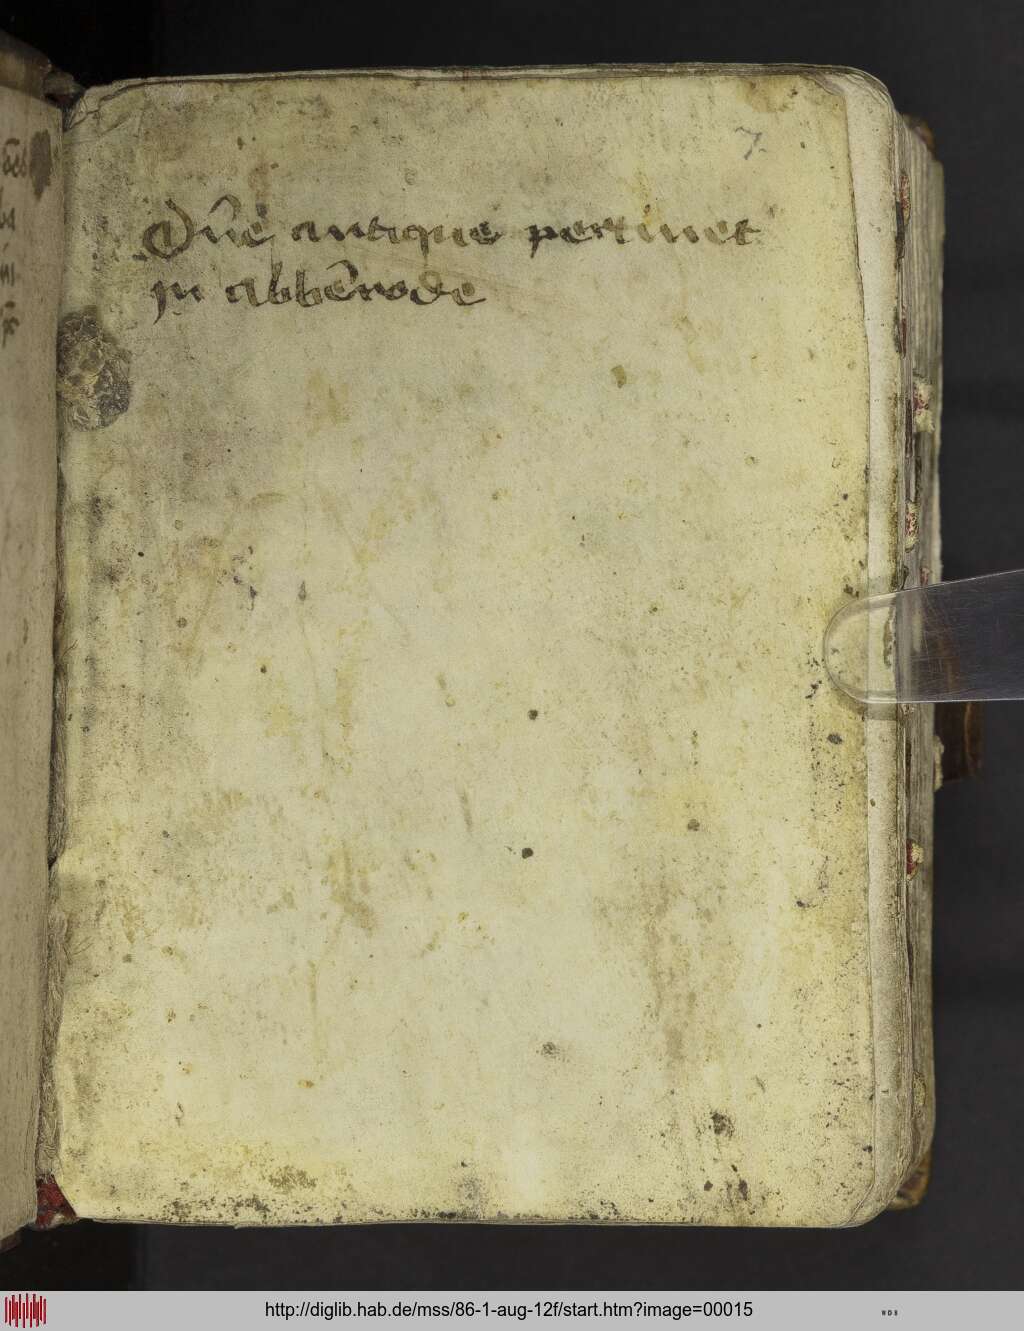 7
Dn̄e antique pertinet
in abbērode
http://diglib.hab.de/mss/86-1-aug-12f/start.htm?image=00015